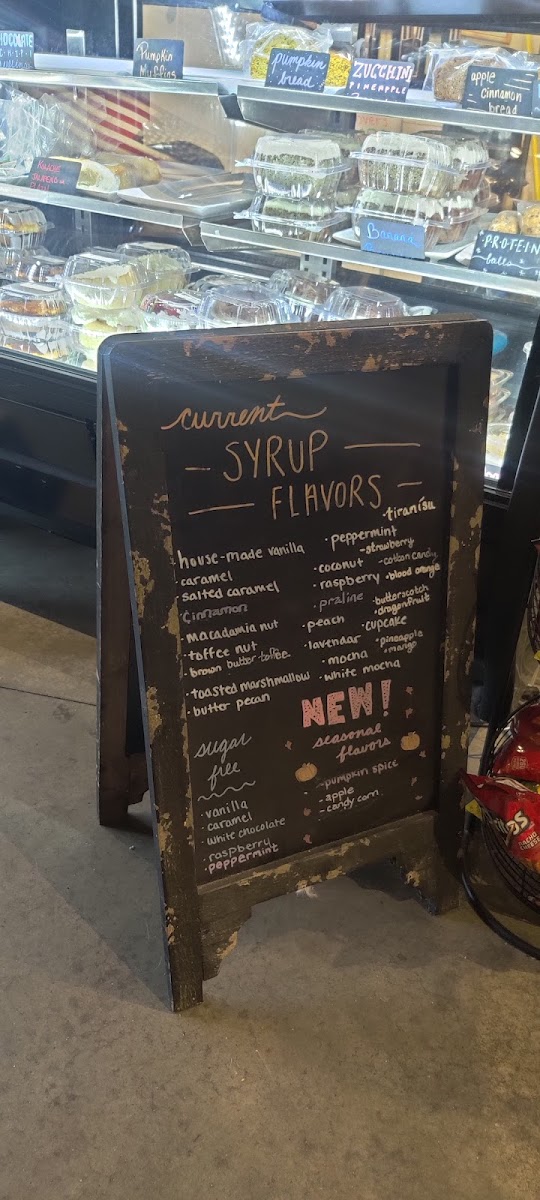 Pumpkin
Muffins
Pumpkin
bread
ZUCCHINI
PINEAPPLE
apple
cinnamon
bread
Banana
PROTEIN
balls
current
SYRUP
FLAVORS
house-made vanilla
caramel
salted caramel
cinnamon
macadamia nut
toffee nut
brown butter toffee
toasted marshmallow
butter pecan
tiranísu
peppermint
strawberry
coconut
cotton candy
raspberry
blood orange
praline
butterscotch
dragonfruit
peach
cupcake
lavendar
pineapple
mango
mocha
white mocha
sugar
free
vanilla
caramel
white chocolate
raspberry
peppermint
NEW!
seasonal
flavors
pumpkin spice
apple
candy corn
NACHO
CHEESE